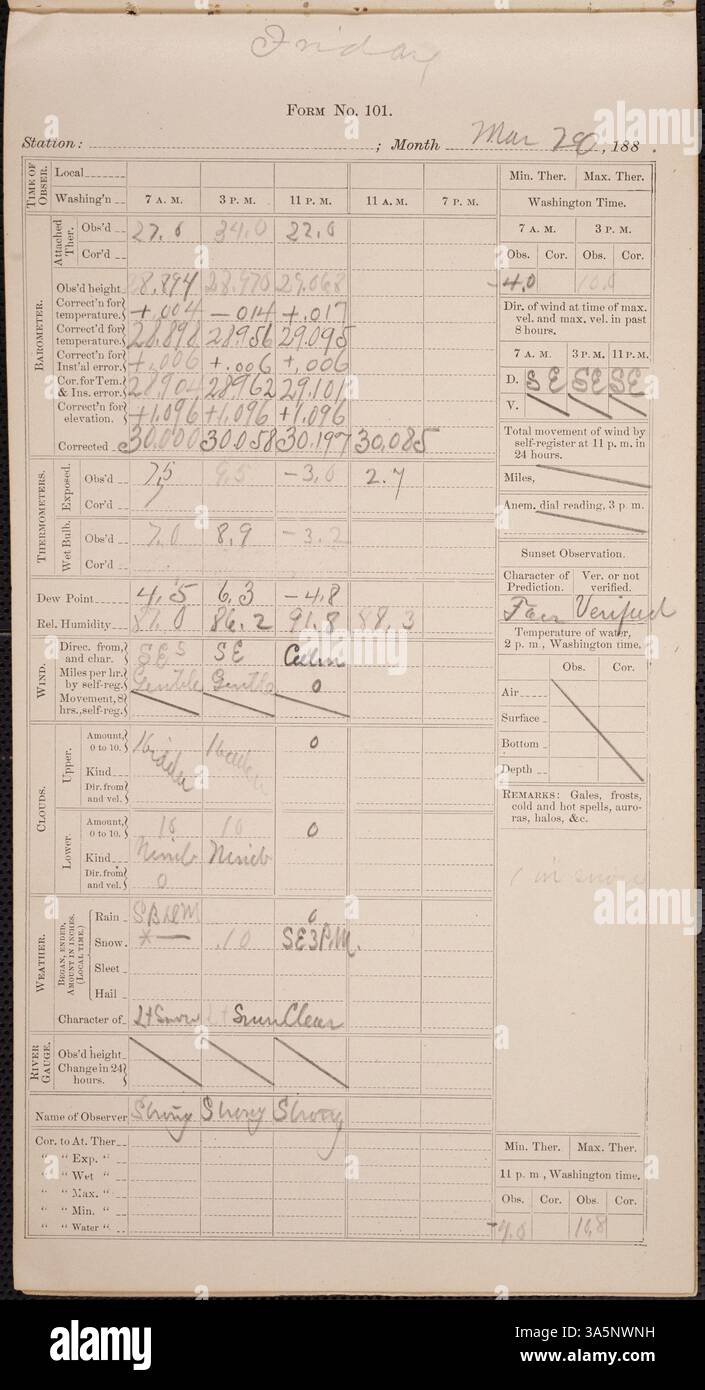 Friday
FORM NO. 101.
Station: ; Month Mar 20, 188 .
TIME OF OBSER.
Local
Washing'n 7 A. M. 3 P. M. 11 P. M. 11 A. M. 7 P. M.
Attached Ther.
Obs'd 27.0 34.0 22.0
Cor'd
BAROMETER.
Obs'd height 28.894 28.970 29.068
Correct'n for temperature. +.004 -.014 +.017
Correct'd for temperature. 28.898 28.956 29.095
Correct'n for Inst'al error. +.006 +.006 +.006
Cor. for Tem. & Ins. error. 28.904 28.962 29.101
Correct'n for elevation. +1.096 +1.096 +1.096
Corrected 30.000 30.058 30.197 30.085
THERMOMETERS.
Exposed.
Obs'd 7.5 9.5 -3.0 2.7
Cor'd
Wet Bulb.
Obs'd 7.0 8.9 -3.2
Cor'd
Dew Point 4.5 6.3 -4.8
Rel. Humidity 87.0 86.2 91.8 88.3
WIND.
Direc. from, and char. SE S SE Calm
Miles per hr. by self-reg. Gentle Gentle 0
Movement, 8 hrs., self-reg.
CLOUDS.
Upper.
Amount, 0 to 10. Hidden Hidden 0
Kind
Dir. from and vel.
Lower.
Amount, 0 to 10. 10 10 0
Kind Nimb Nimb
Dir. from and vel. 0
WEATHER.
BEGAN, ENDED, AMOUNT IN INCHES. (LOCAL TIME.)
Rain 0
Snow .10 SE3P.M.
Sleet
Hail
Character of Lt Snow Lt Snow Clear
RIVER GAUGE.
Obs'd height
Change in 24 hours.
Name of Observer Strong Strong Strong
Cor. to At. Ther
" " Exp. "
" " Wet "
" " Max. "
" " Min. "
" " Water "
Min. Ther. Max. Ther.
Washington Time.
7 A. M. 3 P. M.
Obs. Cor. Obs. Cor.
-4.0 10.0
Dir. of wind at time of max. vel. and max. vel. in past 8 hours.
7 A. M. 3 P. M. 11 P. M.
D. SE SE SE
V.
Total movement of wind by self-register at 11 p. m. in 24 hours.
Miles,
Anem. dial reading, 3 p. m.
Sunset Observation.
Character of Prediction. Ver. or not verified.
Fair Verified
Temperature of water, 2 p. m., Washington time.
Obs. Cor.
Air
Surface
Bottom
Depth
REMARKS: Gales, frosts, cold and hot spells, auroras, halos, &c.
Min. Ther. Max. Ther.
11 p. m., Washington time.
Obs. Cor. Obs. Cor.
alamy
a
Image ID: 3A5NWNH
www.alamy.com